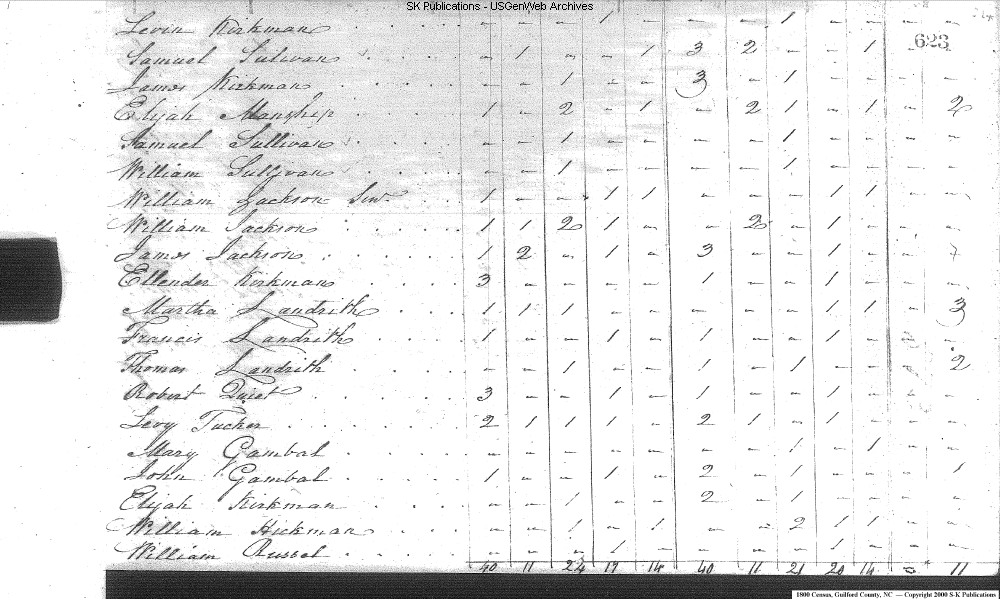 SK Publications - USGenWeb Archives
623
Levin Kirkman - - - 1 - - - 1 - - - -
Samuel Sulivan - 1 - - 1 3 2 - - 1
James Kirkman - - 1 - - 3 - 1 - - - -
Elijah Manship 1 - 2 - 1 - 2 1 - 1 - 2
Samuel Sullivan - - 1 - - - - 1 - - - -
William Sullivan - - 1 - - - - 1 - - - -
William Jackson Sen. 1 - - 1 1 - - - 1 1 - -
William Jackson 1 1 2 1 - - 2 - 1 - - -
James Jackson 1 2 - 1 - 3 - - 1 - -
Ellender Kirkman 3 - - - - 1 - - 1 - - -
Martha Landrith 1 1 1 - - - - - 1 1 - 3
Francis Landrith 1 - - 1 - 1 - - 1 - - -
Thomas Landrith - - 1 - - 1 - 1 - - - 2
Robert Quiet 3 - - 1 - 1 - - 1 - - -
Levy Tucker 2 1 1 1 - 2 1 - 1 - - -
Mary Gambal - - - - - - - 1 - 1 - -
John Gambal 1 - - 1 - 2 - 1 - - - 1
Elijah Kirkman - - 1 - - 2 - 1 - - - -
William Hickman - - 1 - 1 - - 2 1 1 - -
William Russel - - - 1 - - - - 1 - - -
40 11 24 19 14 40 11 21 20 14 11
1800 Census, Guilford County, NC — Copyright 2000 S-K Publications